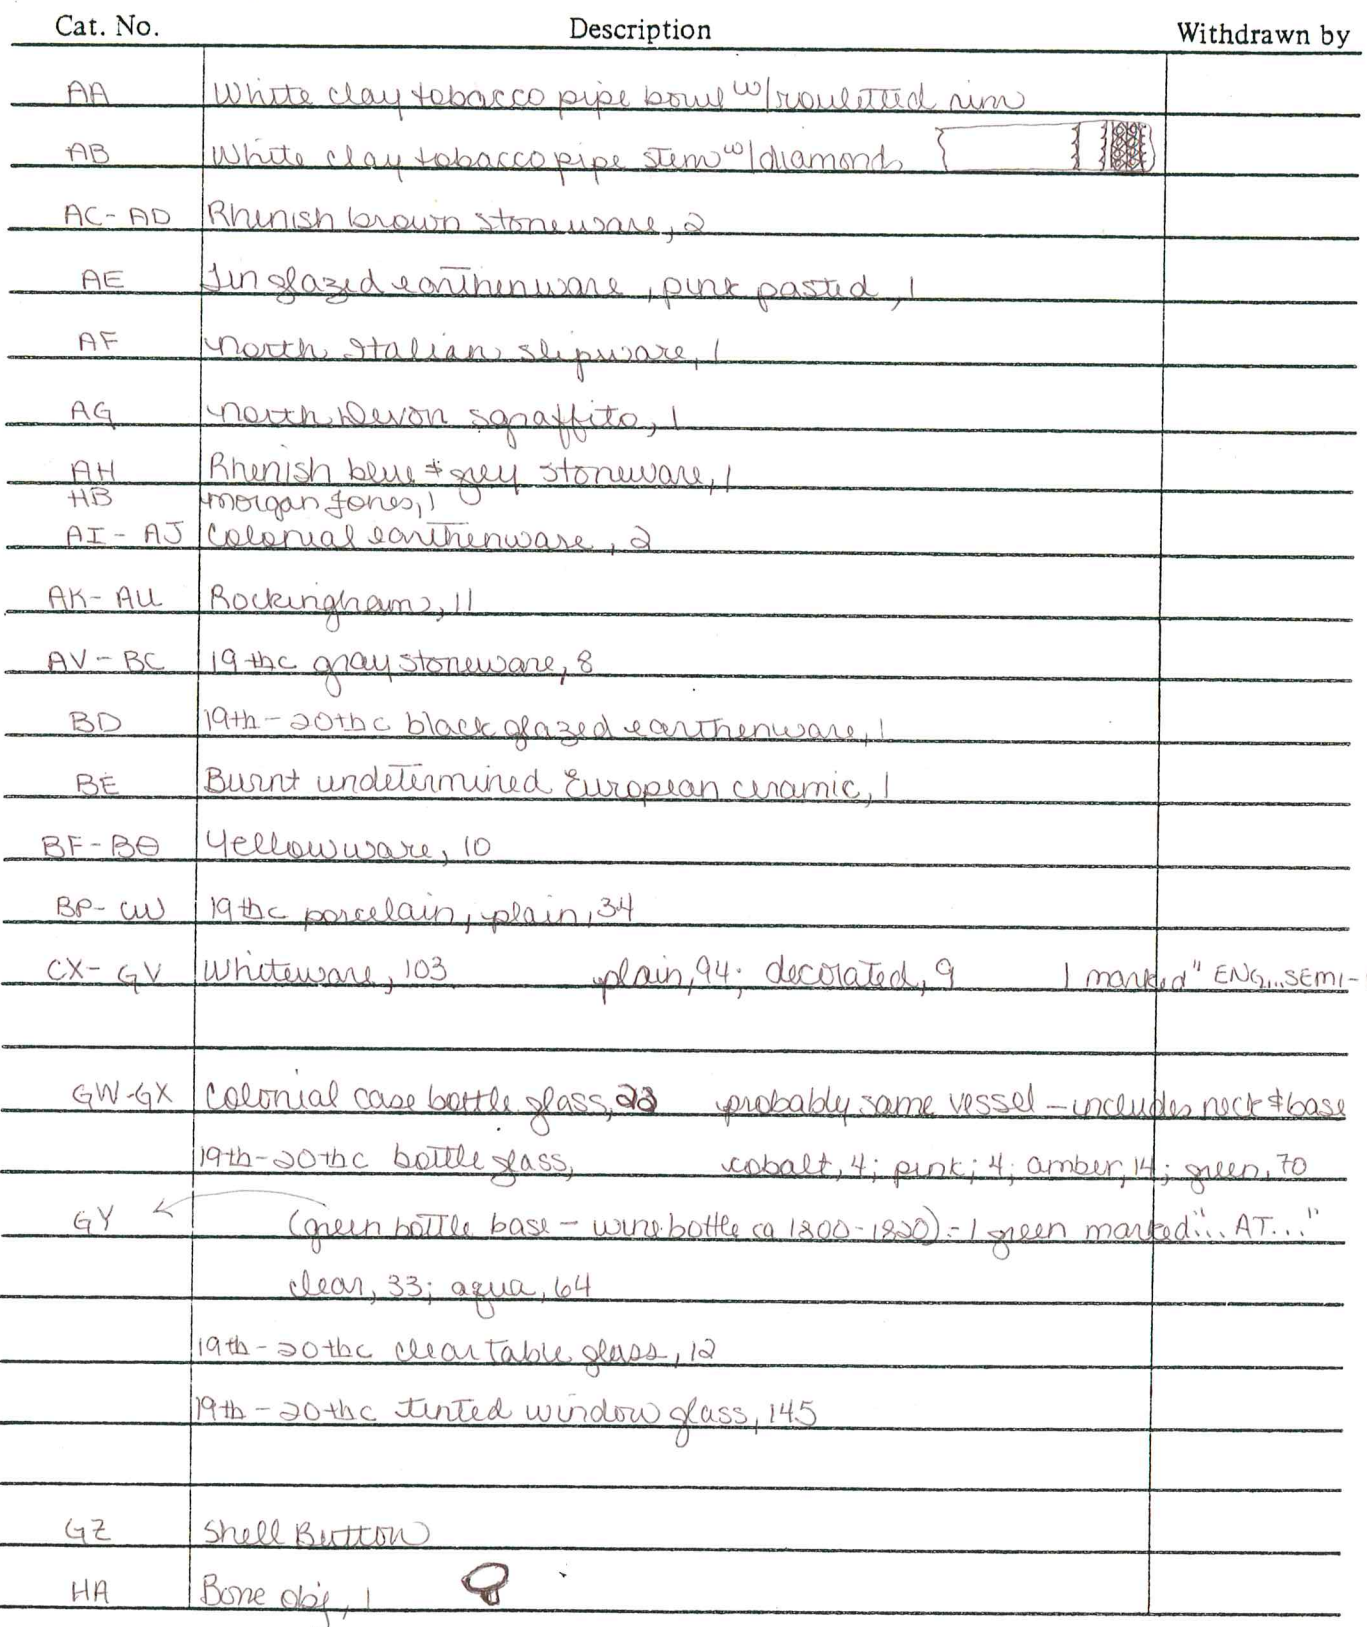 Cat. No. Description Withdrawn by
AA White clay tobacco pipe bowl w/rouletted rim
AB White clay tobacco pipe stem w/diamonds
AC-AD Rhenish brown stoneware, 2
AE Tin glazed earthenware, pink pasted, 1
AF North Italian slipware, 1
AG North Devon sgraffito, 1
AH Rhenish blue & grey stoneware, 1
HB Morgan Jones, 1
AI-AJ Colonial earthenware, 2
AK-AU Rockingham, 11
AV-BC 19thc gray stoneware, 8
BD 19th-20thc black glazed earthenware, 1
BE Burnt undetermined European ceramic, 1
BF-BO Yellowware, 10
BP-CW 19thc porcelain, plain, 34
CX-GV Whiteware, 103 plain, 94; decorated, 9 1 marked "ENG...SEMI-
GW-GX Colonial case bottle glass, probably same vessel - includes neck & base
19th-20thc bottle glass, cobalt, 4; pink; 4; amber, 14; green, 70
GY (green bottle base - wine bottle ca 1800-1820)-1 green marked "...AT..."
clear, 33; aqua, 64
19th-20thc clear table glass, 12
19th-20thc tinted window glass, 145
GZ Shell Button
HA Bone obj, 1